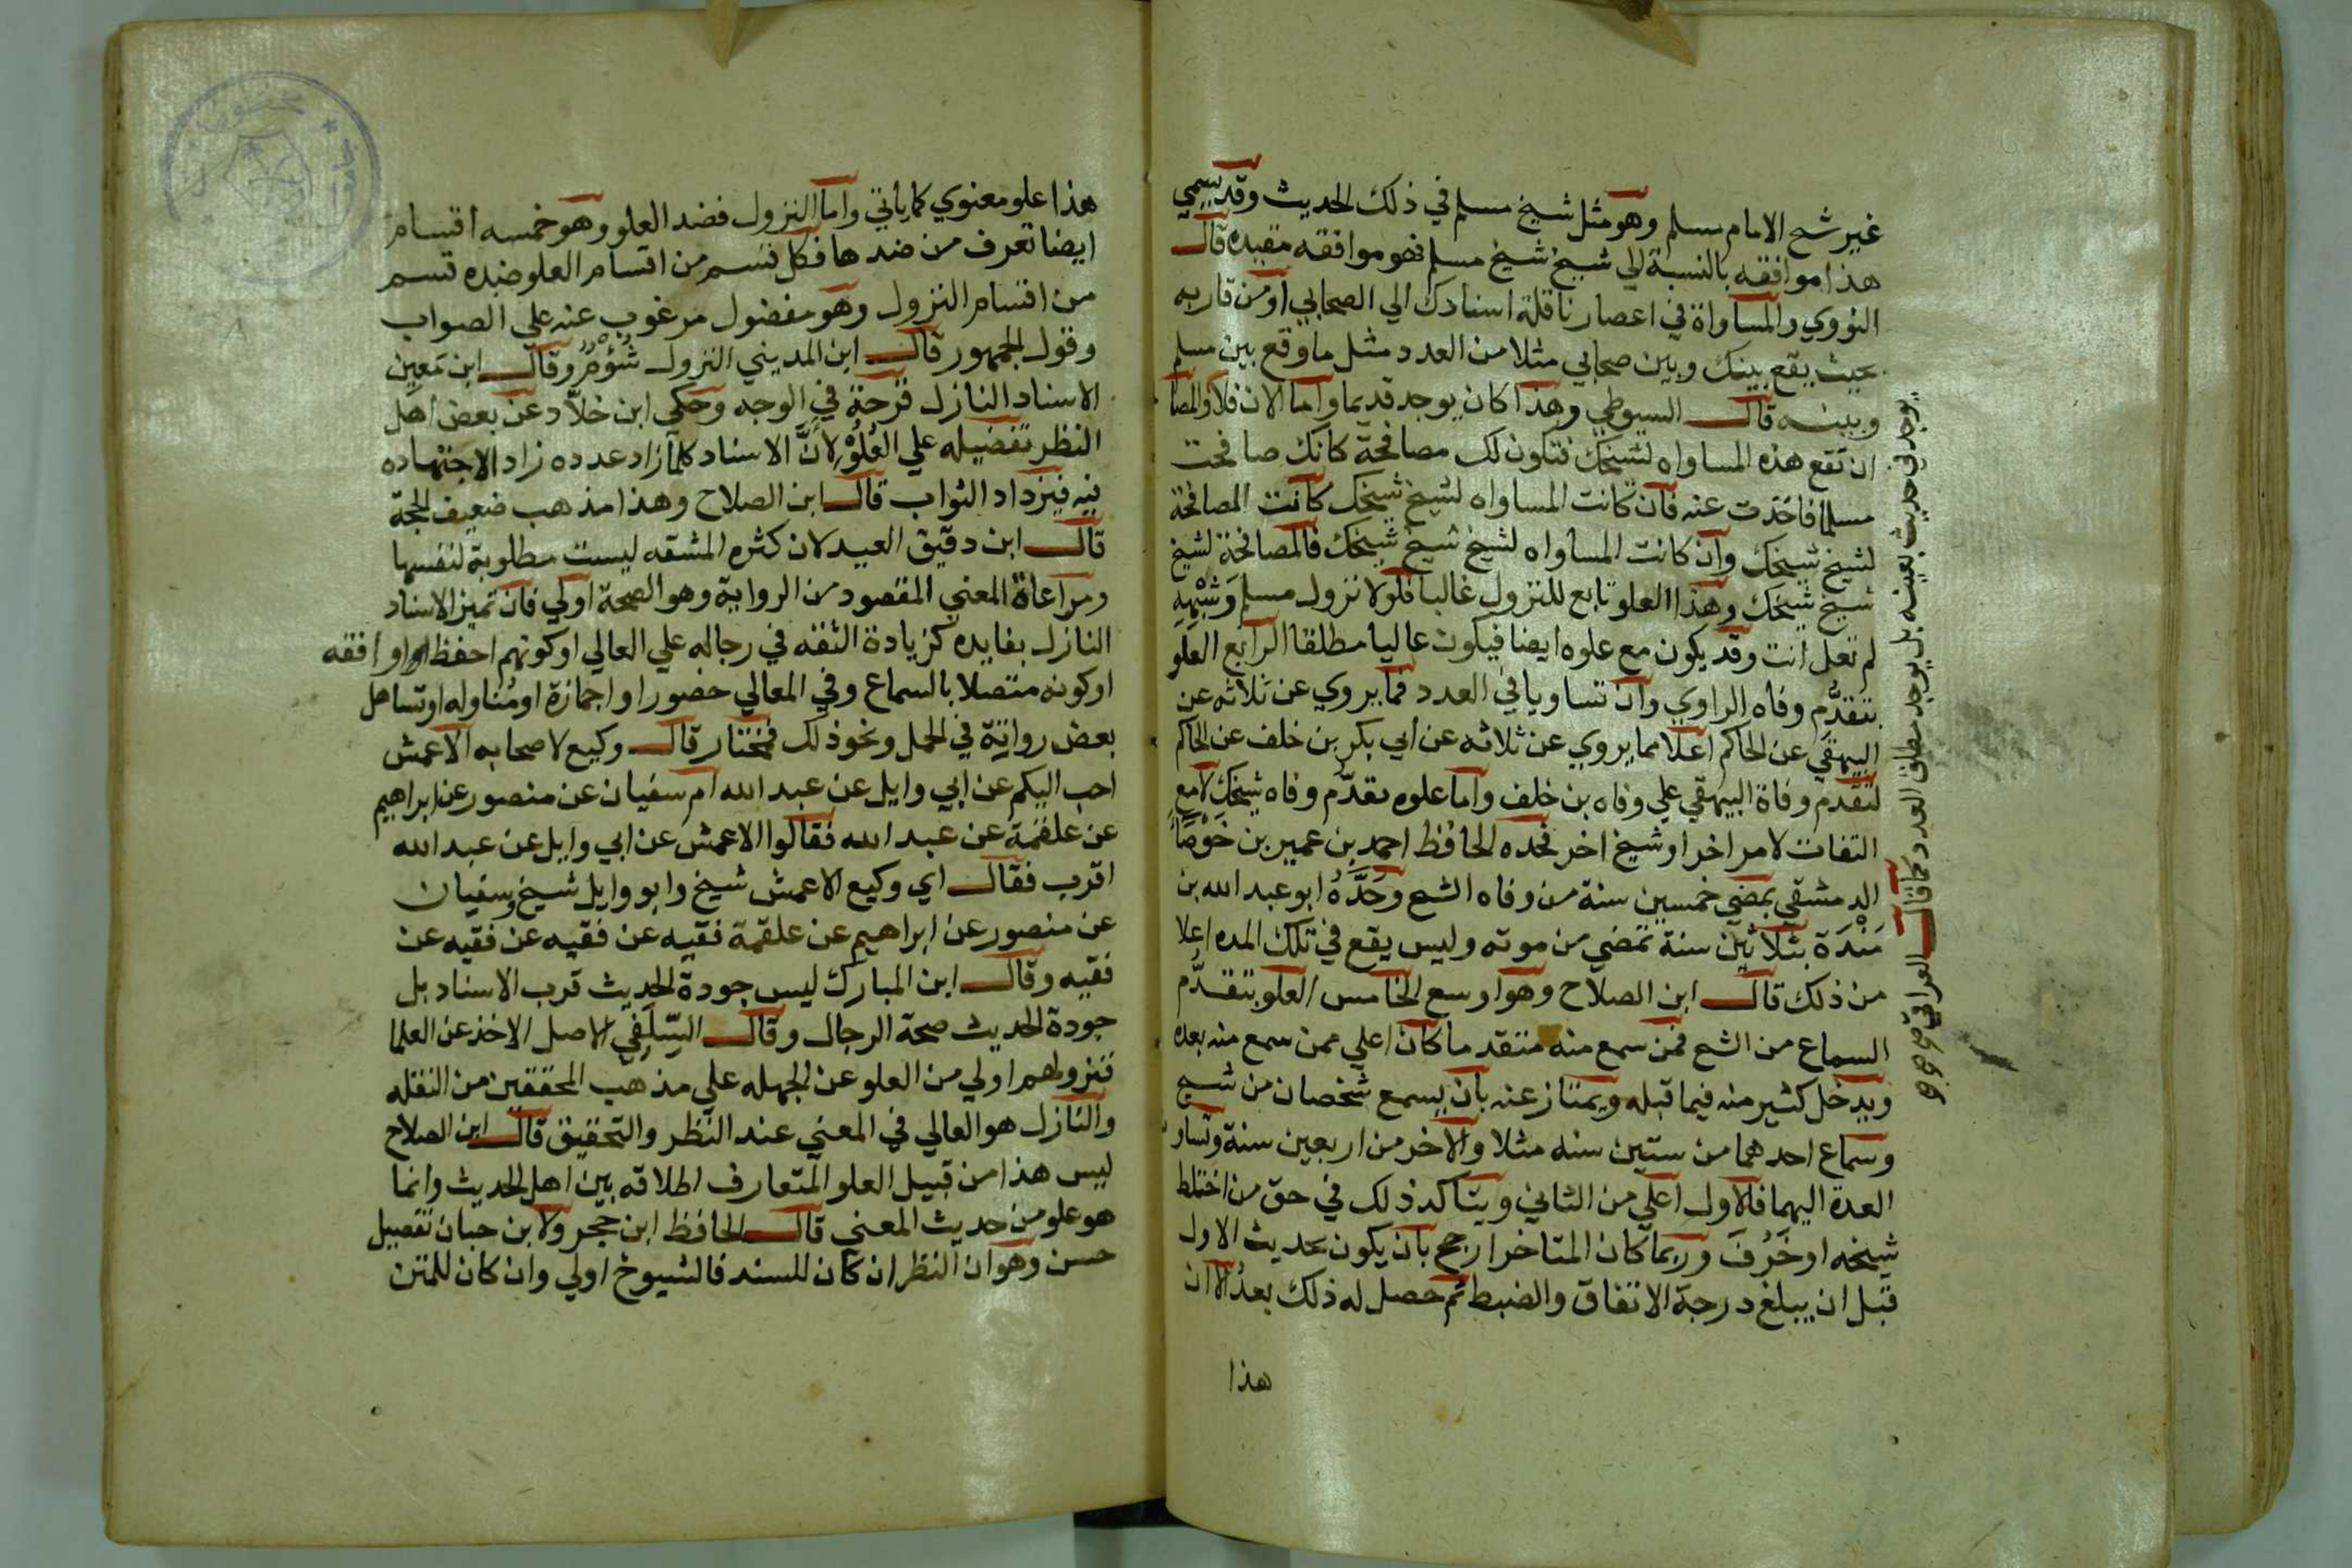 غير شح الامام مسلم وهو مثل شيخ مسلم في ذلك الحديث وقد يسمي
هذا موافقه بالنسبة الي شيخ شيخ مسلم فهو موافقه مقيده قال
النووي والمساواة في اعصارنا قلة اسنادك الي الصحابي او من قاربه
بحيث يقع بينك وبين صحابي مثلا من العدد مثل ما وقع بين مسلم
وبينه قال السيوطي وهذا كان يوجد قديما واما الان فلا والمصا
ان تقع هذه المساواه لشيخك فتكون لك مصافحة كانك صافحت
مسلما فاخذت عنه فان كانت المساواه لشيخ شيخك كانت المصافحة
لشيخ شيخك وان كانت المساواه لشيخ شيخ شيخك فالمصافحة لشيخ
شيخ شيخك وهذا العلو تابع للنزول غالبا فلولا نزول مسلم وشبهه
لم تعل انت وقد يكون مع علوه ايضا فيكون عاليا مطلقا الرابع العلو
بتقدم وفاه الراوي وان تساويا في العدد فما يروي عن ثلاثه عن
البيهقي عن الحاكم اعلا مما يروي عن ثلاثه عن ابي بكر بن خلف عن الحاكم
لتقدم وفاة البيهقي علي وفاه بن خلف واما علوه بتقدم وفاه شيخك لا مع
التفات لامر اخر او شيخ اخر فحده الحافظ احمد بن عمير بن حوصا
الدمشقي بمضي خمسين سنة من وفاه الشح وحده ابو عبد الله بن
مندة بثلاثين سنة تمضي من موته وليس يقع في تلك المده اعلا
من ذلك قال ابن الصلاح وهو اوسع الخامس العلو بتقدم
السماع من الشح فمن سمع منه متقدما كان اعلي ممن سمع منه بعده
ويدخل كثير منه فيما قبله ويمتاز عنه بان يسمع شخصان من شيخ
وسماع احدهما من ستين سنه مثلا والاخر من اربعين سنة وتساو
العدة اليهما فالاول اعلي من الثاني ويتاكد ذلك في حق من اختلط
شيخه او خرف وربما كان المتاخر ارجح بان يكون تحديث الاول
قبل ان يبلغ درجة الاتقان والضبط ثم حصل له ذلك بعد الا ان
هذا
يوجد في حديث بعينه بل يوجد مطلق العدد كما قال العراقي
هذا علو معنوي كما ياتي واما النزول فضد العلو وهو خمسه اقسام
ايضا تعرف من ضدها فكل قسم من اقسام العلو ضده قسم
من اقسام النزول وهو مفضول مرغوب عنه علي الصواب
وقول الجمهور قال ابن المديني النزول شؤم وقال ابن معين
الاسناد النازل قرحة في الوجه وحكي ابن خلاد عن بعض اهل
النظر تفضيله علي العلو لان الاسناد كلما زاد عدده زاد الاجتهاده
فيه فيزداد الثواب قال ابن الصلاح وهذا مذهب ضعيف الحجة
قال ابن دقيق العيد لان كثره المشقه ليست مطلوبة لنفسها
ومراعاة المعني المقصود من الرواية وهو الصحة اولي فان تميز الاسناد
النازل بفايده كزيادة الثقه في رجاله علي العالي او كونهم احفظ او افقه
او كونه متصلا بالسماع وفي العالي حضور او اجازة او مناوله او تساهل
بعض رواته في الحمل ونحو ذلك فمختار قال وكيع لاصحابه الاعمش
احب اليكم عن ابي وايل عن عبد الله ام سفيان عن منصور عن ابراهيم
عن علقمة عن عبد الله فقالوا الاعمش عن ابي وايل عن عبد الله
اقرب فقال اي وكيع الاعمش شيخ وابو وايل شيخ وسفيان
عن منصور عن ابراهيم عن علقمة فقيه عن فقيه عن فقيه عن
فقيه وقال ابن المبارك ليس جودة الحديث قرب الاسناد بل
جودة الحديث صحة الرجال وقال السلفي الاصل الاخذ عن العلما
فنزولهم اولي من العلو عن الجهله علي مذهب المحققين من النقله
والنازل هو العالي في المعني عند النظر والتحقيق قال ابن الصلاح
ليس هذا من قبيل العلو المتعارف اطلاقه بين اهل الحديث وانما
هو علو من حديث المعني قال الحافظ ابن حجر ولابن حبان تفصيل
حسن وهو ان النظر ان كان للسند فالشيوخ اولي وان كان للمتن